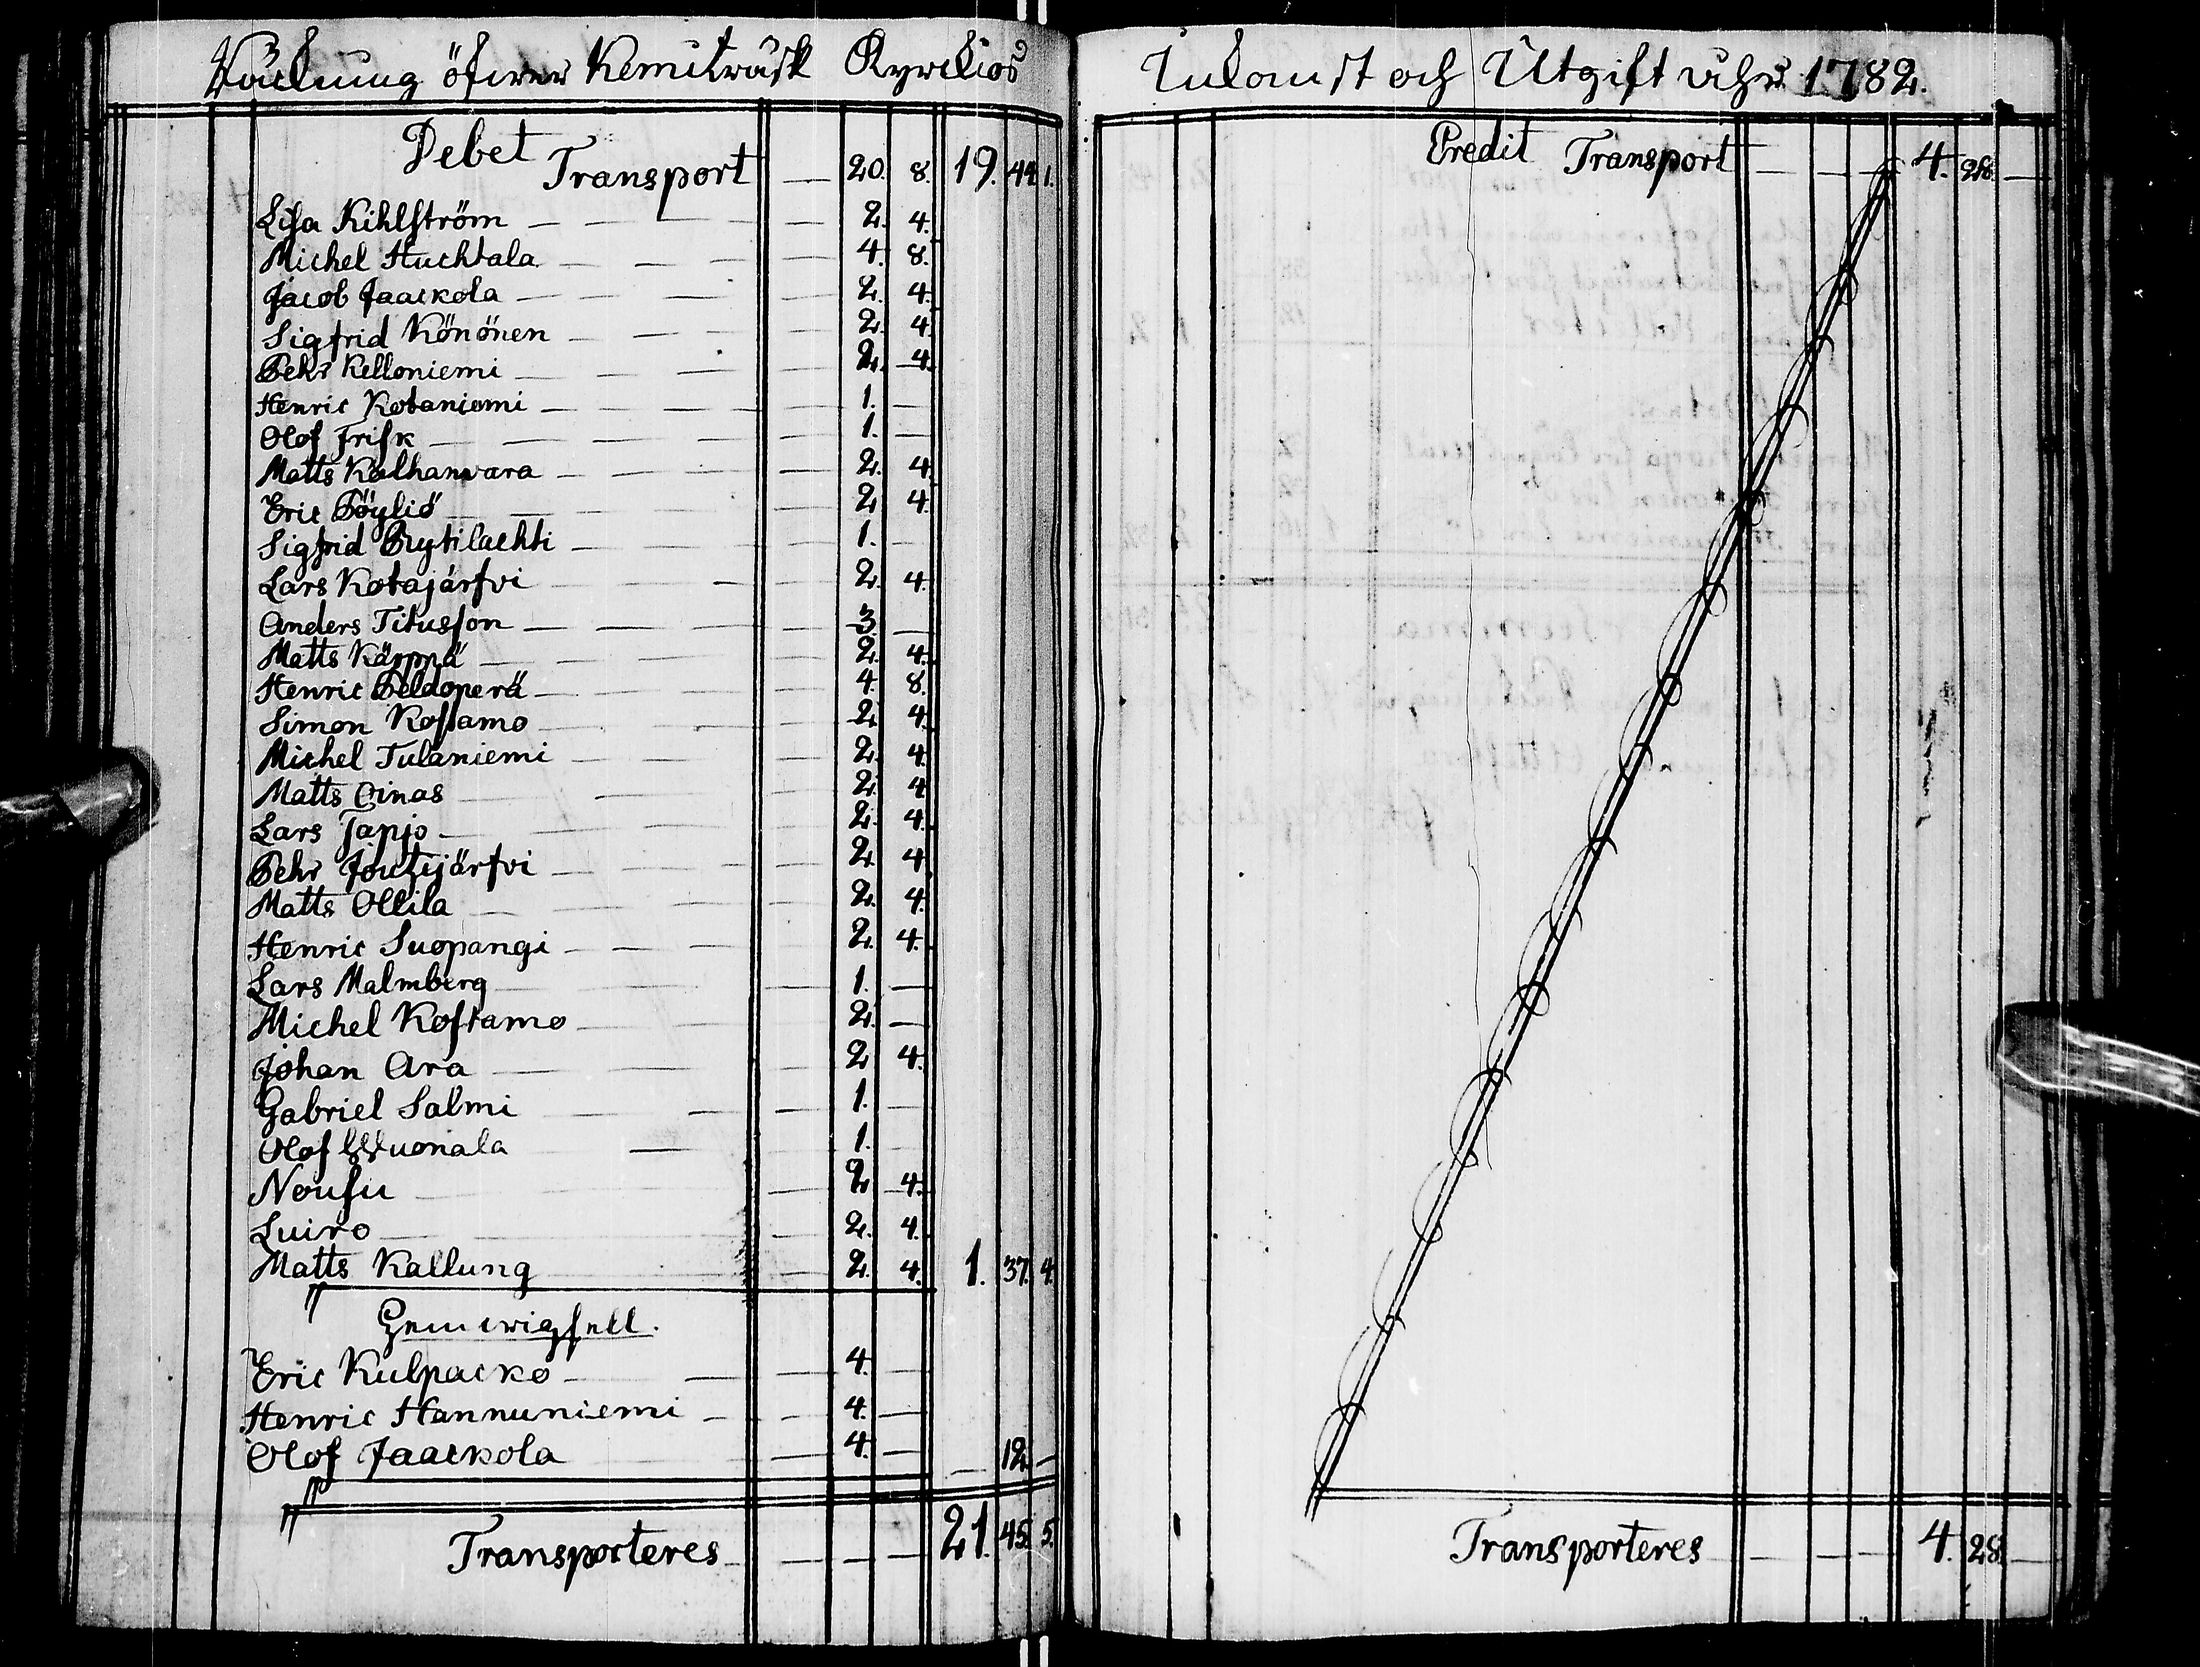 Räckning öfwer Kemiträsk Kyrckios
Debet
Transport 20. 8. 19. 44. 1.
Lisa Kihlström 2. 4.
Michel Huchtala 4. 8.
Jacob Jaackola 2. 4.
Sigfrid Könönen 2. 4.
Pehr Kelloniemi 2. 4.
Henric Kotaniemi 1.
Olof Frisk 1.
Matts Kalhanvara 2. 4.
Eric Pöyliö 2. 4.
Sigfrid Rytilachti 1.
Lars Kotajärfvi 2. 4.
Anders Titusson 3
Matts Käppä 2. 4.
Henric Peldoperä 4. 8.
Simon Kostamo 2. 4.
Michel Tulaniemi 2. 4.
Matts Oinas 2. 4
Lars Tapio 2. 4.
Pehr Joutzijärfvi 2. 4.
Matts Ollila 2. 4.
Henric Suopangi 2. 4.
Lars Malmberg 1.
Michel Kostamo 2.
Johan Ara 2. 4.
Gabriel Salmi 1.
Olof Wuonala 1.
Nousu 2. 4.
Luiro 2. 4.
Matts Kallung 2. 4. 1. 37. 4.
Eric Kulpacko 4.
Henric Hannuniemi 4.
Olof Jaackola 4. 12.
Transporteres 21. 45. 5.
Inkomst och Utgift åhr 1782.
Credit Transport 4. 28.
Transporteres 4. 28.